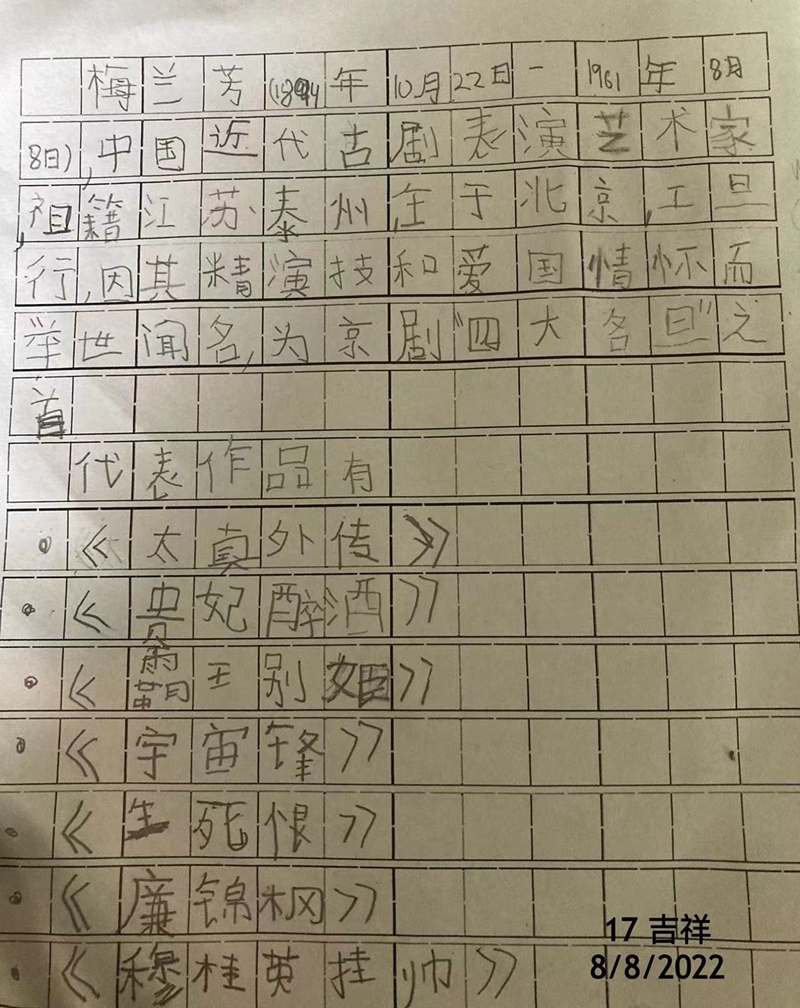 梅兰芳(1894年10月22日一1961年8月
8日),中国近代古剧表演艺术家
,祖籍江苏泰州,生于北京,工旦
行,因其精演技和爱国情怀而
举世闻名,为京剧“四大名旦”之
首
代表作品有
。《太真外传》
。《贵妃醉酒》
。《霸王别姬》
。《宇宙锋》
。《生死恨》
。《廉锦枫》
。《穆桂英挂帅》
17 吉祥
8/8/2022